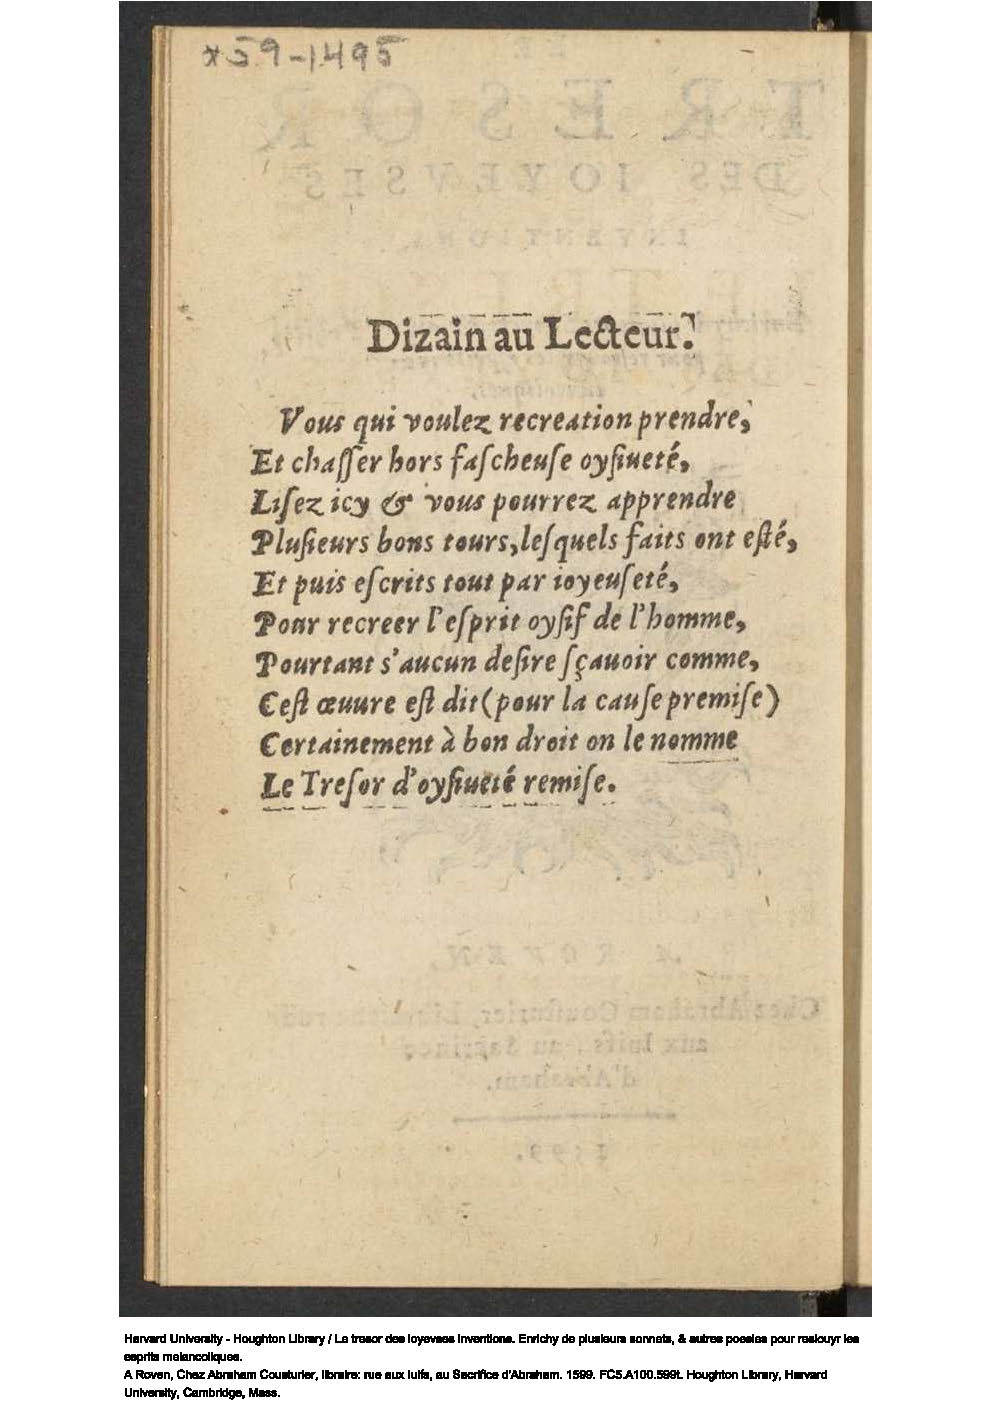 *59-1495
Dizain au Lecteur.
Vous qui voulez recreation prendre,
Et chaſſer hors faſcheuſe oyſiueté,
Liſez icy & vous pourrez apprendre
Pluſieurs bons tours, leſquels faits ont eſté,
Et puis eſcrits tout par ioyeuſeté,
Pour recreer l'eſprit oyſif de l'homme,
Pourtant s'aucun deſire ſçauoir comme,
Ceſt œuure eſt dit (pour la cauſe premiſe)
Certainement à bon droit on le nomme
Le Treſor d'oyſiueté remiſe.
Harvard University - Houghton Library / Le tresor des ioyevses inventions. Enrichy de plusieurs sonnets, & autres poesies pour resiouyr les
esprits melancoliques.
A Roven, Chez Abraham Cousturier, libraire: rue aux Iuifs, au Sacrifice d'Abraham. 1599. FC5.A100.599t. Houghton Library, Harvard
University, Cambridge, Mass.